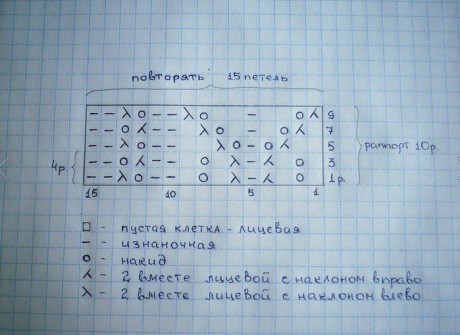 повторять 15 петель
— — λ о — — λ о — о ⅄ 9
— — о ⅄ — — λ о — о ⅄ 7
— — λ о — — λ о — о ⅄ 5
— — о ⅄ — — о λ — ⅄ о 3
— — λ о — — о λ — ⅄ о 1р.
раппорт 10р.
4р.
15 10 5 1
□ - пустая клетка - лицевая
— - изнаночная
о - накид
⅄ - 2 вместе лицевой с наклоном вправо
λ - 2 вместе лицевой с наклоном влево